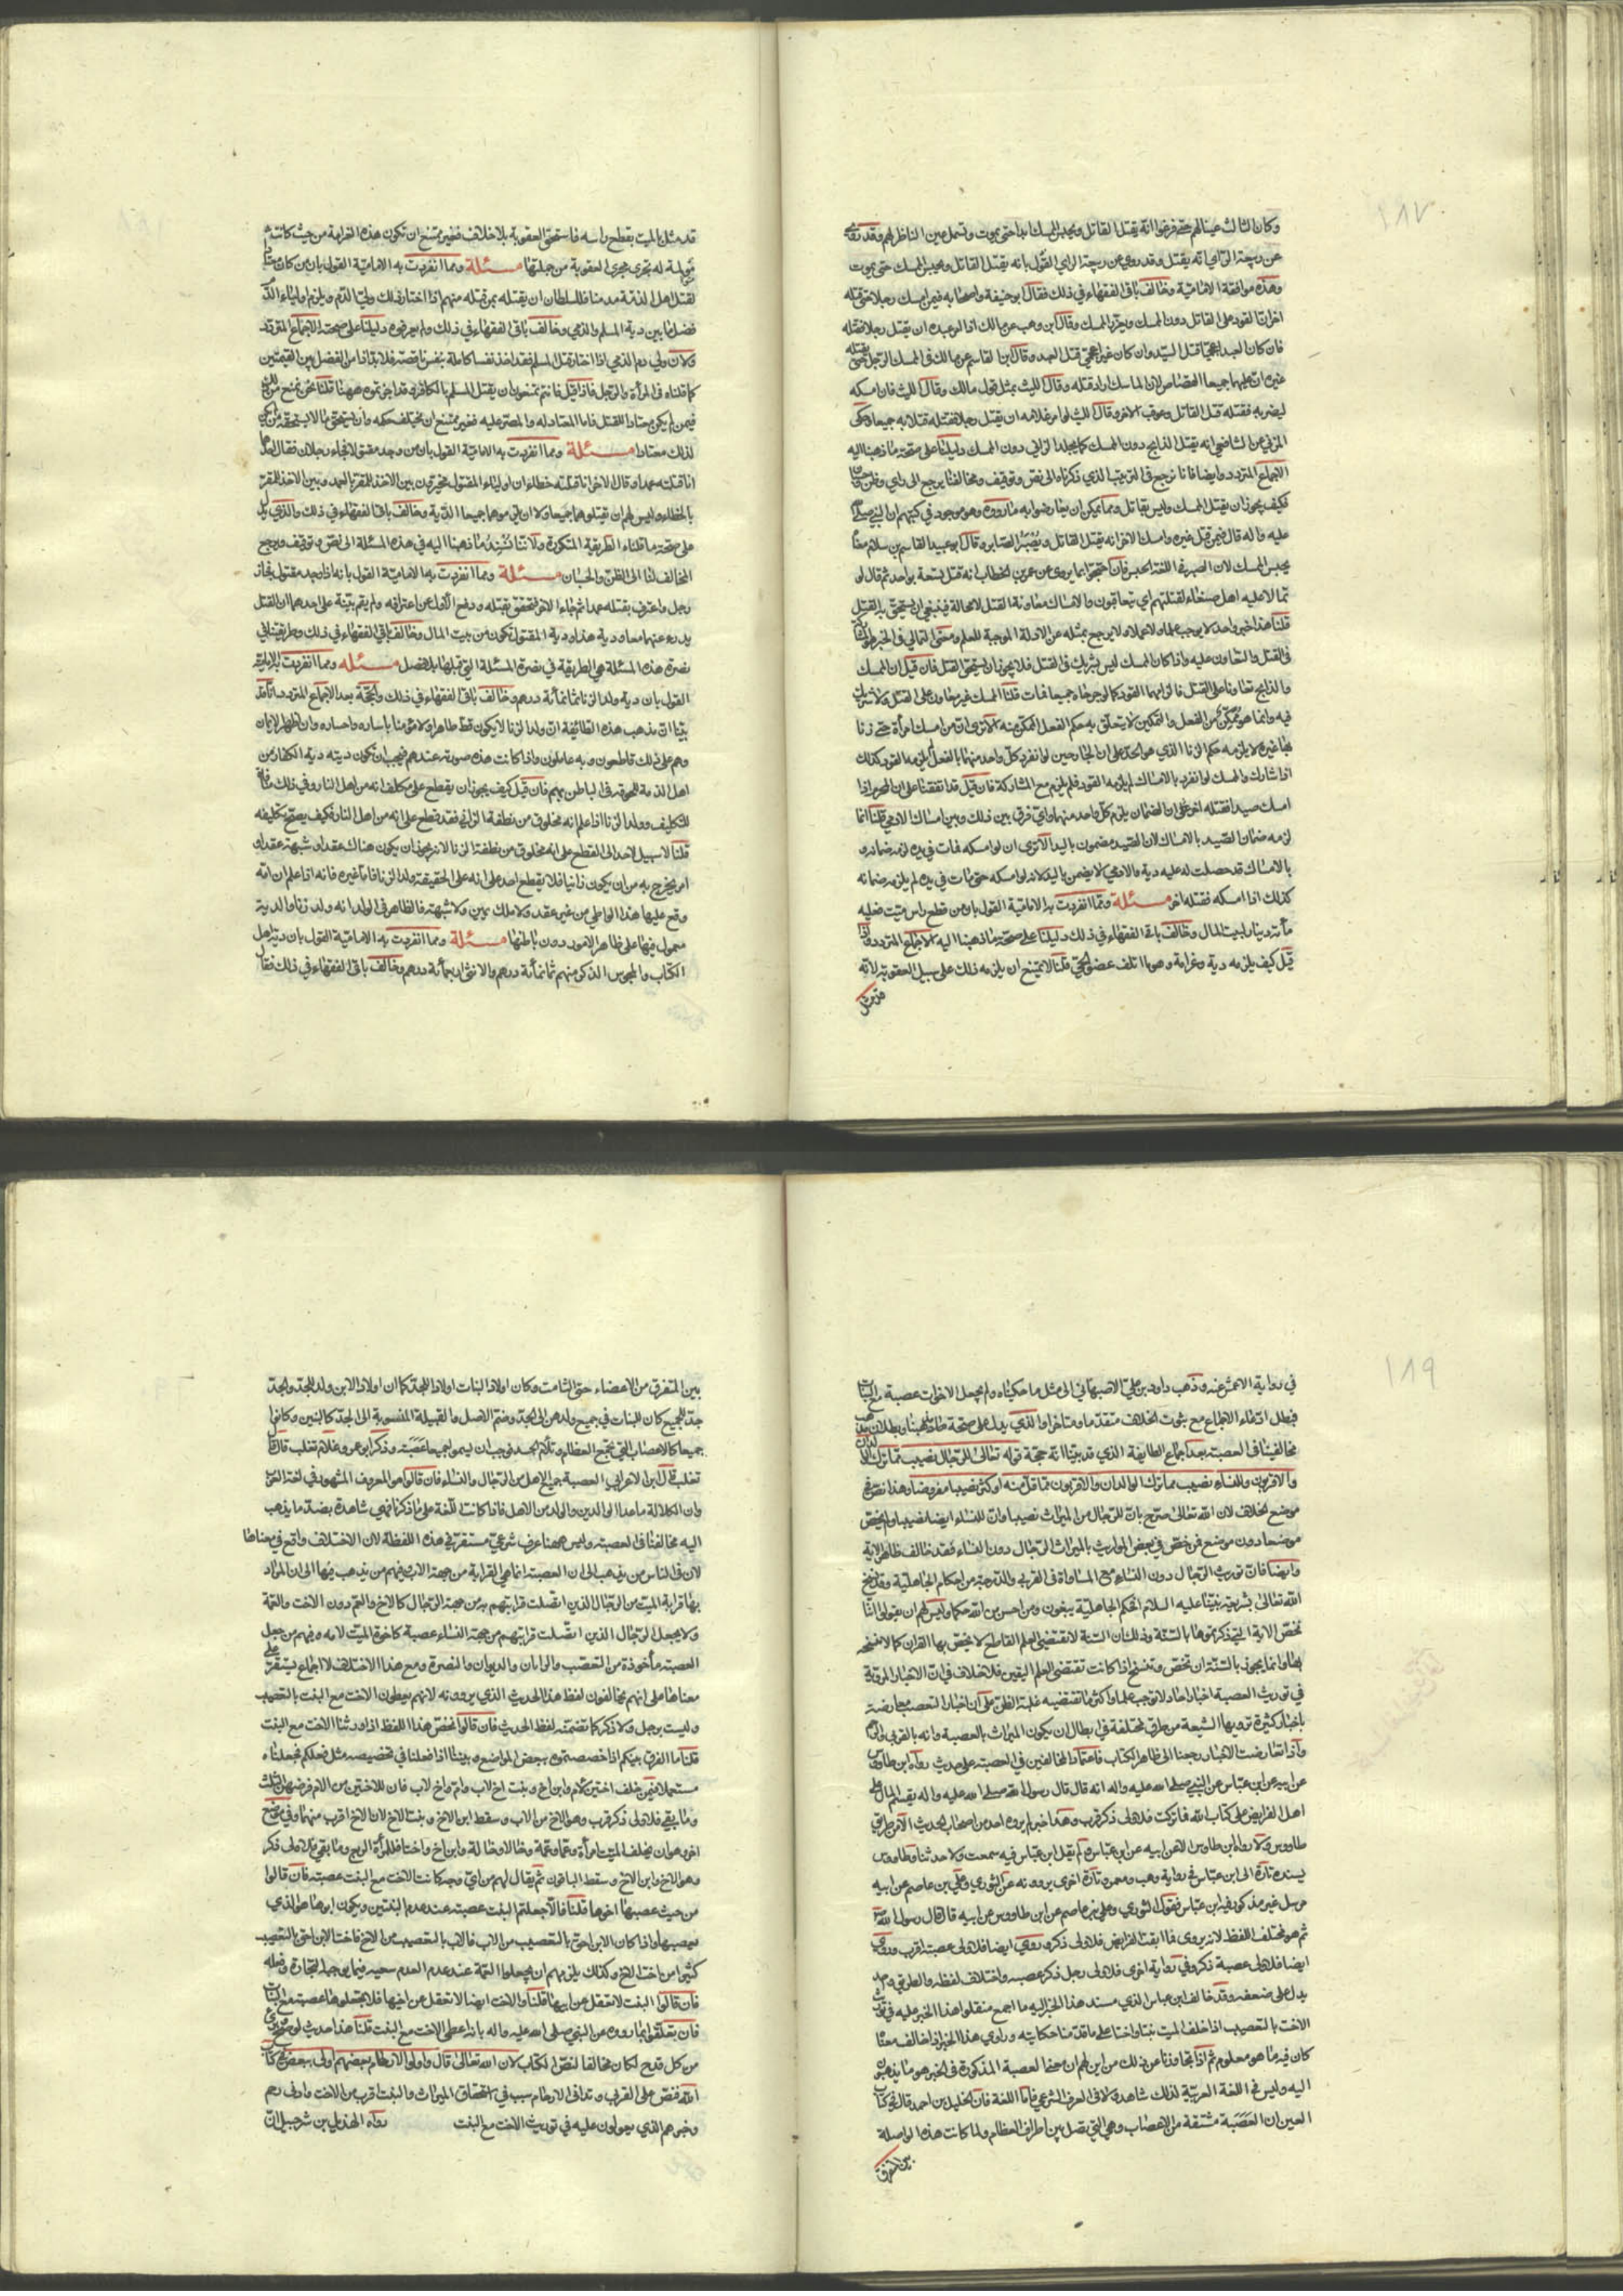 ١٨٧
وكان الثالث عينا لهم حتى فرغوا انه يقتل القاتل ويحبس الممسك ابدا حتى يموت وتسمل عين الناظر لهم وقد
عن ربيعة الراي انه يقتل وقد روي عن ربيعة الراي القول بانه يقتل القاتل ويحبس الممسك حتى يموت
وهذه موافقة الامامية وخالف باقي الفقهاء في ذلك فقال ابو حنيفة واصحابه فيمن امسك رجلا حتى قتله
اخر ان القود على القاتل دون الممسك ويعزر الممسك وقال ابن وهب عن مالك اذا امر عبده ان يقتل رجلا فقتله
فان كان العبد اعجميا قتل السيد وان كان غير اعجمي قتل العبد وقال ابن القاسم عن مالك في الممسك الرجل حتى يقتله
غيره ان عليهما جميعا القصاص لان الماسك اراد قتله وقال الليث بمثل قول مالك وقال الليث فان امسكه
ليضربه فقتله قتل القاتل وعوقب الاخر وقال الليث لو امر غلامه ان يقتل رجلا فقتله قتلا به جميعا وحكى
المزني عن الشافعي انه يقتل الذابح دون الممسك كما يجلد الزاني دون الممسك دليلنا على صحة ما ذهبنا اليه
الاجماع المتردد وايضا فاننا نرجع في الترتيب الذي ذكرناه الى نص وتوقيف ومخالفنا يرجع الى راي وظن
فكيف يجوز ان يقتل الممسك وليس بقاتل ومما يمكن ان يعارضوا به ما رووه وهو موجود في كتبهم ان النبي صلى الله
عليه واله قال فيمن قتل غيره وامسك الاخر انه يقتل القاتل ويصبر الصابر وقال ابو عبيد القاسم بن سلام معناه
يحبس الممسك لان الصبر في اللغة الحبس فان احتجوا بما يروى عن عمر بن الخطاب انه قتل سبعة بواحد ثم قال لو
تمالا عليه اهل صنعاء لقتلتهم اي يتعاونون والامساك معاونة القتل لا محالة فينبغي ان يستحق به القتل
قلنا هذا خبر واحد لا يوجب علما ولا عملا ولا يرجع بمثله عن الادلة الموجبة للعلم ومعنى التمالي في الخبر
في القتل والتعاون عليه واذا كان الممسك ليس بشريك في القتل فلا يجوز ان يستحق القتل فان قيل ان الممسك
والذابح تعاونا على القتل فالزمهما القود كما لو جرحاه جميعا فمات قلنا الممسك غير معاون على القتل ولا شريك
فيه وانما هو ممكن من الفعل والتمكين لا يتعلق به حكم الفعل الممكن منه الا ترى ان من امسك امراة حتى زنا
بها غيره لا يلزمه حكم الزنا الذي هو الحد على ان الجارحين لو انفرد كل واحد منهما بالفعل لزمه القود كذلك
اذا شارك والممسك لو انفرد بالامساك لم يلزمه القود فلم يلزم مع المشاركة فان قيل قد اتفقنا على ان المحرم اذا
امسك صيدا فقتله اخر على ان الضمان يلزم كل واحد منهما واي فرق بين ذلك وبين امساك الادمي قلنا انما
لزمه ضمان الصيد بالامساك لان الصيد مضمون باليد الا ترى ان لو امسكه فمات في يده لزمه ضمانه و
بالامساك قد حصلت له عليه دية والادمي لا يضمن باليد لانه لو امسكه حتى مات في يده لم يلزمه ضمانه
كذلك اذا امسكه فقتله اخر مسئلة ومما انفردت به الامامية القول بان من قطع راس ميت فعليه
مائة دينار لبيت المال وخالف باقي الفقهاء في ذلك دليلنا على صحة ما ذهبنا اليه الاجماع المتردد
قيل كيف يلزمه دية وغرامة وهو ما اتلف عضو الحي قلنا لا يمتنع ان يلزمه ذلك على سبيل العقوبة لانه
قد مثل
قد مثل بالميت بقطع راسه فاستحق العقوبة بلا خلاف فغير ممتنع ان تكون هذه الغرامة من حيث كانت
مؤلمة له تجري مجرى العقوبة من جملتها مسئلة ومما انفردت به الامامية القول بان من كان معتادا
لقتل اهل الذمة مدمنا فللسلطان ان يقتله بمن قتله منهم اذا اختار ذلك ولي الدم ويلزم اولياء الدم
فضل ما بين دية المسلم والذمي وخالف باقي الفقهاء في ذلك ولم يعرفوه دليلنا على صحته الاجماع المتردد
ولان ولي دم الذمي اذا اختار قتل المسلم فقد اخذ نفسا كاملة بنفس ناقصة فلا بد اذا من الفضل بين القيمتين
كما قلناه في المراة والرجل فاذا قيل فانتم تمنعون ان يقتل المسلم بالكافر وقد اجزتموه ههنا قلنا نحن نمنع من ذلك
فيمن لم يكن معتادا للقتل فاما المعتاد له والمصر عليه فغير ممتنع ان يختلف حكمه وان يستحق ما لا يستحقه من لم يكن
لذلك معتادا مسئلة ومما انفردت به الامامية القول بان من وجد مقتولا فجاء رجلان فقال احدهما
انا قتلته عمدا وقال الاخر انا قتلته خطاء ان اولياء المقتول مخيرون بين الاخذ للمقر بالعمد وبين الاخذ للمقر
بالخطاء وليس لهم ان يقتلوهما جميعا ولا ان يلزموهما جميعا الدية وخالف باقي الفقهاء في ذلك والذي يدل
على صحة ما قلناه الطريقة المتكررة ولاننا نسند ما ذهبنا اليه في هذه المسئلة الى نص وتوقيف ويرجع
المخالف لنا الى الظن والحسبان مسئلة ومما انفردت به الامامية القول بانه اذا وجد مقتول فجاء
رجل واعترف بقتله عمدا ثم جاء الاخر فتحقق بقتله ودفع الاول عن اعترافه ولم يقم بينة على احدهما ان القتل
يدرء عنهما معا ودية هذا ودية المقتول تكون من بيت المال وخالف باقي الفقهاء في ذلك وطريقتنا في
نصرة هذه المسئلة هي الطريقة في نصرة المسئلة التي قبلها بلا فصل مسئلة ومما انفردت به الامامية
القول بان دية ولد الزنا ثمانمائة درهم وخالف باقي الفقهاء في ذلك والحجة بعد الاجماع المتردد انا قد
بينا ان مذهب هذه الطائفة ان ولد الزنا لا يكون قط طاهرا ولا مؤمنا بايثاره واختياره وان اظهر الايمان
وهم على ذلك قاطعون وبه عاملون واذا كانت هذه صورته عندهم فيجب ان تكون ديته دية الكفار من
اهل الذمة للحوقه في الباطن بهم فان قيل كيف يجوز ان يقطع على مكلف انه من اهل النار وفي ذلك منافاة
للتكليف وولد الزنا اذا علم انه مخلوق من نطفة الزاني فقد قطع على انه من اهل النار فكيف يصح تكليفه
قلنا لا سبيل لاحد الى القطع على انه مخلوق من نطفة الزنا لانه يجوز ان يكون هناك عقد او شبهة عقد او
امر يخرج به من ان يكون زانيا فلا يقطع احد على انه على الحقيقة ولد الزنا فاما غيره فانه اذا علم ان امه
وقع عليها هذا الواطي من غير عقد ولا ملك يمين ولا شبهة فالظاهر في الولد انه ولد زنا والدية
معمول فيها على ظاهر الامور دون باطنها مسئلة ومما انفردت به الامامية القول بان دية اهل
الكتاب والمجوس الذكر منهم ثمانمائة درهم والانثى اربعمائة درهم وخالف باقي الفقهاء في ذلك فقال
١٨٩
في رواية الاعمش عنه وذهب داود بن علي الاصبهاني الى مثل ما حكيناه ولم يجعل الاخوات عصبة مع البنات
فبطل ادعاء الاجماع مع ثبوت الخلاف متقدما ومتاخرا والذي يدل على صحة ما ذهبنا وبطلان مذهب
مخالفينا في العصبة بعد اجماع الطايفة الذي قد بينا انه حجة قوله تعالى للرجال نصيب مما ترك الوالدان
والاقربون وللنساء نصيب مما ترك الوالدان والاقربون مما قل منه او كثر نصيبا مفروضا وهذا نص في
موضع الخلاف لان الله تعالى صرح بان للرجال من الميراث نصيبا وان للنساء ايضا نصيبا ولم يخص
موضعا دون موضع فمن خص في بعض المواريث بالميراث الرجال دون النساء فقد خالف ظاهر الاية
وايضا فان توريث الرجال دون النساء مع المساواة في القربى والدرجة من احكام الجاهلية وقد نسخ
الله تعالى بشريعة نبينا عليه السلام افحكم الجاهلية يبغون ومن احسن من الله حكما وليس لهم ان يقولوا اننا
نخص الاية التي ذكرتموها بالسنة وذلك ان السنة لا تقتضي العلم القاطع لا يخص بها القران كما لا ننسخه
بها وانما يجوز بالسنة ان تخص وتنسخ اذا كانت تقتضي العلم اليقين فلا خلاف في ان الاخبار المروية
في توريث العصبة اخبار احاد لا توجب علما واكثر ما تقتضيه غلبة الظن على ان اخبار التعصيب معارضة
باخبار كثيرة ترويها الشيعة من طرق مختلفة في ابطال ان يكون الميراث بالعصبة وانه بالقربى والرحم
واذا تعارضت الاخبار رجعنا الى ظاهر الكتاب فاعتماد المخالفين في العصبة على حديث رواه ابن طاوس
عن ابيه عن ابن عباس عن النبي صلى الله عليه واله انه قال قال رسول الله صلى الله عليه واله يقسم المال على
اهل الفرايض على كتاب الله فما تركت فلاولى ذكر قرب وهذا خبر لم يروه احد من اصحاب الحديث الا من طريق
طاووس ولا رواه ابن طاوس الا عن ابيه عن ابن عباس ولم يقل ابن عباس فيه سمعت ولا حدثنا وطاووس
يسنده تارة الى ابن عباس في رواية وهب ومعمر وتارة اخرى يروونه عن الثوري وعلي بن عاصم عن ابيه
مرسل غير مذكور فيه ابن عباس فيقول الثوري وعلي بن عاصم عن ابن طاووس عن ابيه قال قال رسول الله
ثم هو مختلف اللفظ لانه يروى فما ابقت الفرايض فلاولى ذكر وروي ايضا فلاولى عصبة اقرب وروي
ايضا فلاولى عصبة ذكر وفي رواية اخرى فلاولى رجل ذكر عصبة واختلاف لفظه والطريق واحد
يدل على ضعفه وقد خالف ابن عباس الذي مسند هذا الخبر اليه ما اجمع متقلوا هذا الخبر عليه في توريث
الاخت بالتعصيب اذا خلف الميت بنتا واختا على ما قدمنا حكايته وراوي هذا الخبر اذا خالف معناه
كان فيه ما هو معلوم ثم اذا تجاوزنا عن ذلك من اين لهم ان معنا العصبة المذكورة في الخبر هو ما يذهبون
اليه وليس في اللغة العربية لذلك شاهد ولا في العرف الشرعي فاما اللغة فان الخليل بن احمد قال في كتاب
العين ان العصبة مشتقة من الاعصاب وهي التي تصل بين اطراف العظام ولما كانت هذه الواصلة
بين المتفرق
بين المتفرق من الاعضاء حتى التامت وكان اولاد البنات اولادا للجد كما ان اولاد الابن ولد للجد والجد
جد للجميع كان للبنات في جميع ولدهن الى الجد وضم الاصل والقبيلة المنسوبة الى الجد كالبنين وكانوا
جميعا كالاعصاب التي تجمع العظام وتلام الجسد فوجب ان يسموا جميعا عصبة وذكر ابو عمرو غلام تغلب قال
تغلب قال ابن الاعرابي العصبة جميع الاهل من الرجال والنساء فان قالوا هو المعروف المشهور في لغة العرب
وان الكلالة ما عدا الوالدين والولد من الاهل فاذا كانت اللغة على ما ذكرنا فهي شاهدة بضد ما يذهب
اليه مخالفنا في العصبة وليس ههنا عرف شرعي مستقر في هذه اللفظة لان الاختلاف واقع في معناها
لان في الناس من يذهب الى ان العصبة انما هي القرابة من جهة الاب وفيهم من يذهب فيها الى ان المراد
بها قرابة الميت من الرجال الذين اتصلت قرابتهم به من جهة الرجال كالاخ والعم دون الاخت والعمة
ولا يجعل الرجال الذين اتصلت قرابتهم من جهة النساء عصبة كاخوة الميت لامه وفيهم من جعل
العصبة ماخوذة من التعصب والرايات والديوان والنصرة ومع هذا الاختلاف لا اجماع يستقر على
معناها على انهم يخالفون لفظ هذا الحديث الذي يروونه لانهم يعطون الاخت مع البنت بالتعصيب
وليست برجل ولا ذكر كما تضمنه لفظ الحديث فان قالوا نخص هذا اللفظ اذا ورثنا الاخت مع البنت
قلنا ما الفرق بينكم اذا خصصتموه ببعض المواضع وبيننا اذا فعلنا في تخصيصه مثل فعلكم فجعلناه
مستعملا فيمن خلف اختين لام وابن اخ وبنت اخ لاب وام واخ لاب فان للاختين من الام فرضهن الثلث
وما بقي فلاولى ذكر قرب وهو الاخ من الاب وسقط ابن الاخ وبنت الاخ لان الاخ اقرب منهما وفي موضع
اخر وهو ان يخلف الميت امراة وعما وعمة وخالا وخالة وابن اخ واخا فللمراة الربع وما بقي فلاولى ذكر
وهو الاخ وابن الاخ وسقط الباقون ثم يقال لهم من اي وجه كانت الاخت مع البنت عصبة فان قالوا
من حيث عصبها اخوها قلنا فالا جعلتم البنت عصبة عند عدم البنتين ويكون ابوها هو الذي
يعصبها واذا كان الابن احق بالتعصيب من الاب فالاب بالتعصيب من الاخ فاخت الابن احق بالتعصيب
كثيرا من اخت الاخ وكذلك يلزمهم ان يجعلوا العمة عند عدم العم عصبة فيما يوجب التجارة وفعله
فان قالوا البنت لا تعقل عن ابيها قلنا والاخت ايضا لا تعقل عن اخيها فلا تجعلوها عصبة مع البنات
فان تعلقوا بما رووه عن النبي صلى الله عليه واله بانه اعطى الاخت مع البنت قلنا هذا حديث لو صح وبرئ
من كل قدح لكان مخالفا لنص الكتاب لان الله تعالى قال واولوا الارحام بعضهم اولى ببعض في كتاب
الله فنص على القربى وتدافى الارحام سبب في استحقاق الميراث والبنت اقرب من الاخت وادنى رحم
وخبرهم الذي يعولون عليه في توريث الاخت مع البنت رواه الهذيل بن شرحبيل ان